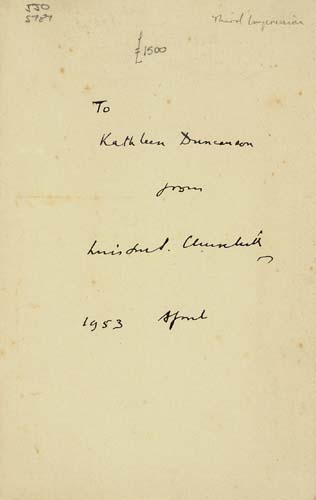 530
5787
Third Impression
£1500
To
Kathleen Duncanson
from
Winston S. Churchill
1953 April